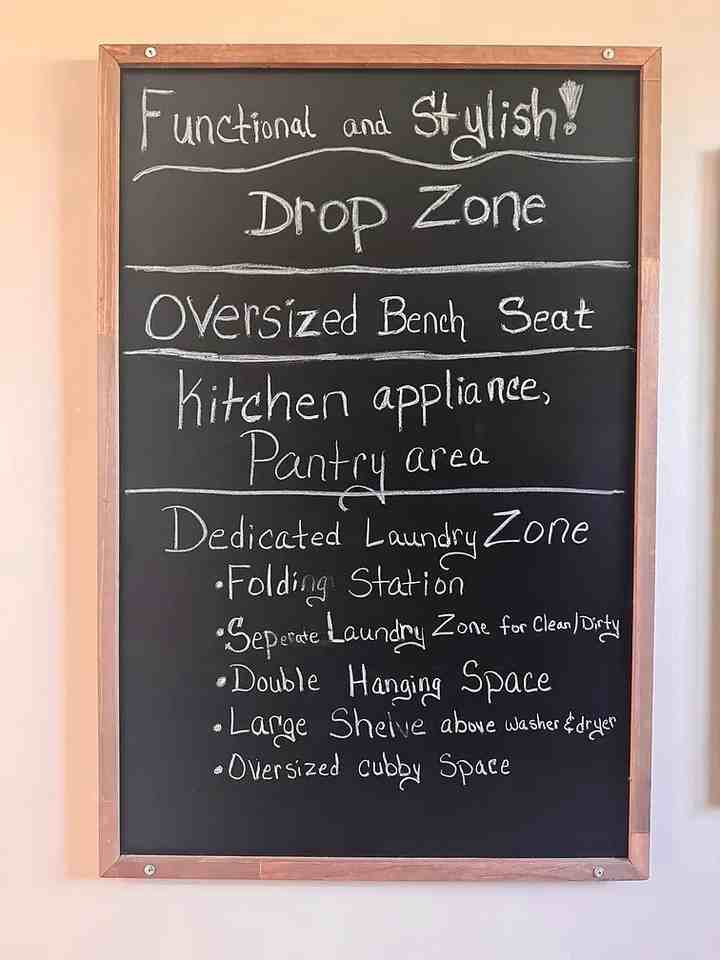 Functional and Stylish!
Drop Zone
Oversized Bench Seat
Kitchen appliance,
Pantry area
Dedicated Laundry Zone
• Folding Station
• Seperate Laundry Zone for Clean/Dirty
• Double Hanging Space
• Large Shelve above washer & dryer
• Oversized cubby Space